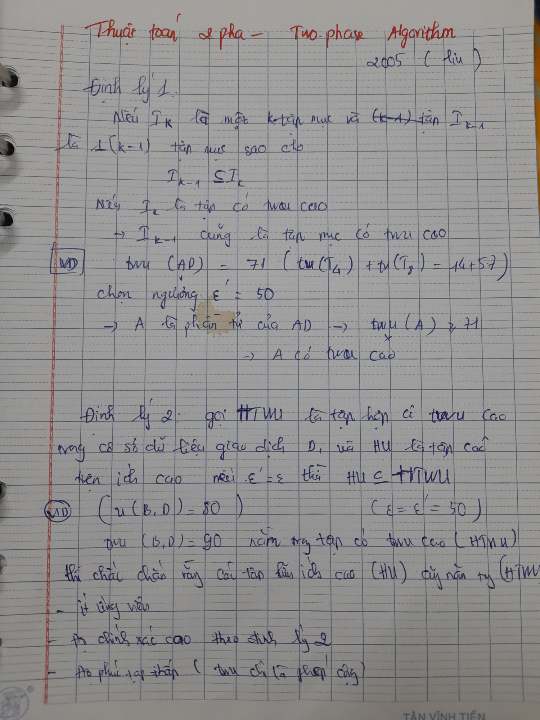 Thuật toán 2 pha - Two-phase Algorithm
2005 (liu)
Định lý 1.
Nếu Ik là một k-tập mục và (k-1) tập Ik-1
là 1(k-1) tập mục sao cho
Ik-1 ⊆ Ik
Nếu Ik là tập có twu cao
→ Ik-1 cũng là tập mục có twu cao
VD twu (AD) = 71 (tu(T4) + tu(T8) = 14+57)
chọn ngưỡng ε' = 50
→ A là phần tử của AD → twu (A) ≥ 71
→ A có twu cao
Định lý 2. gọi HTWU là tập hợp có twu cao
trong cơ sở dữ liệu giao dịch D, và HU là tập các
tiện ích cao nếu ε'=ε thì HU ⊆ HTWU
VD (u(B,D) = 80) (ε = ε' = 50)
twu (B,D) = 90 nằm trong tập có twu cao (HTWU)
thì chắc chắn rằng các tập hữu ích cao (HU) cũng nằm trg (HTWU
- ít ứng viên
- Độ chính xác cao theo định lý 2
- Độ phức tạp thấp (twu chỉ là phép cộng)
TÂN VĨNH TIẾN